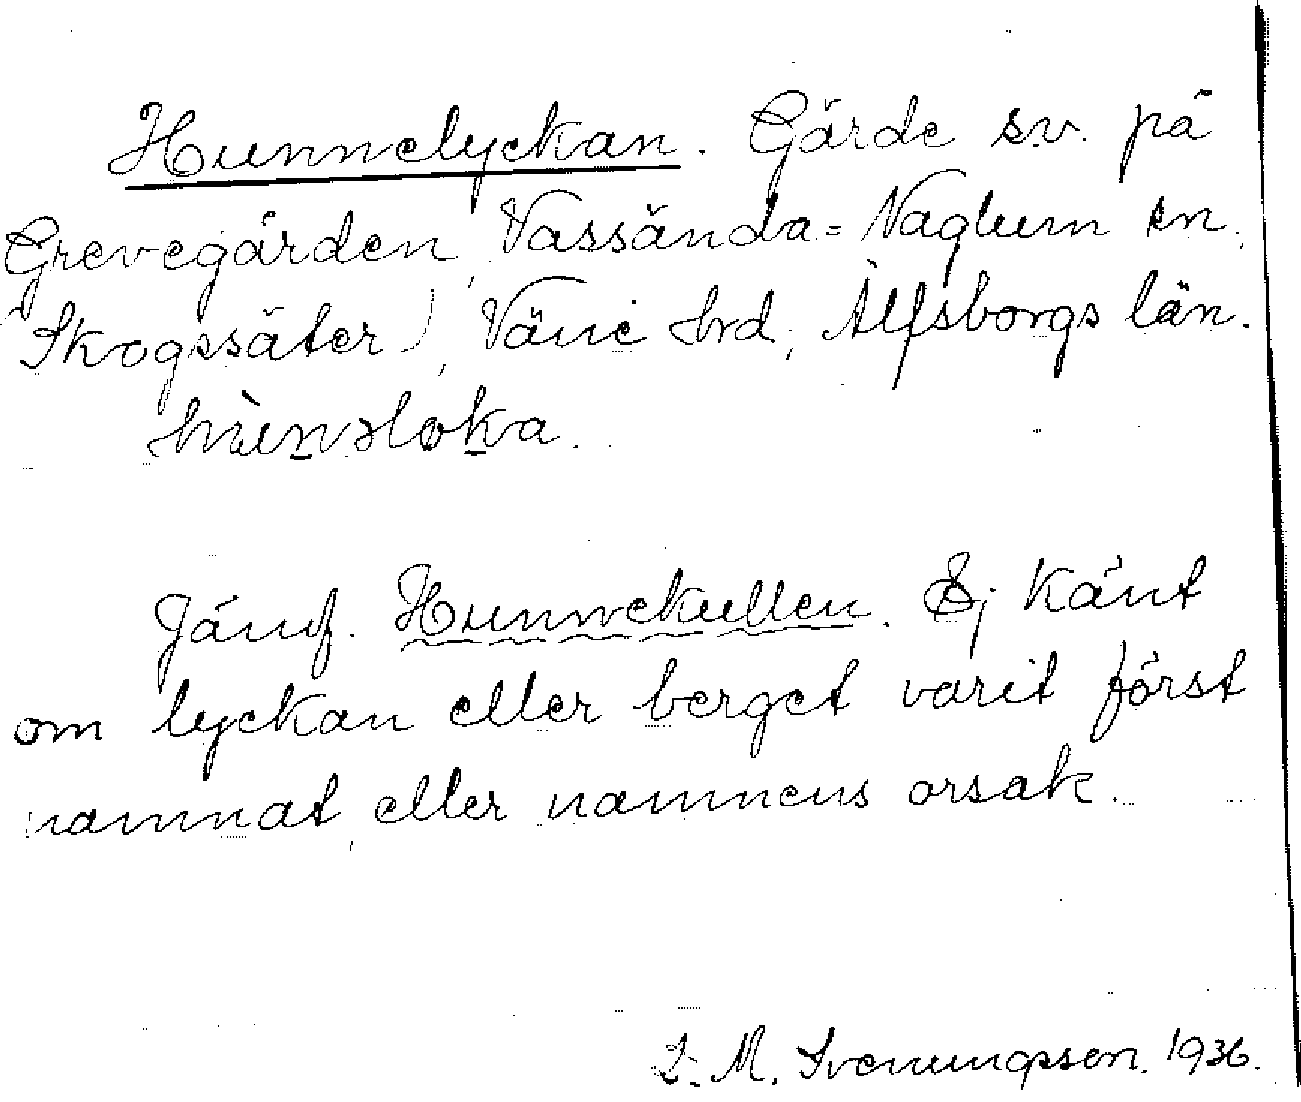 Hunnelyckan. Gärde s.v. på
Grevegården, Vassända-Naglum sn.
Skogssäter), Väne hrd, Älfsborgs län.
Jämf. Hunnekullen. Ej känt
om lyckan eller berget varit först
namnat eller namnens orsak.
M. Svenungsson. 1936.